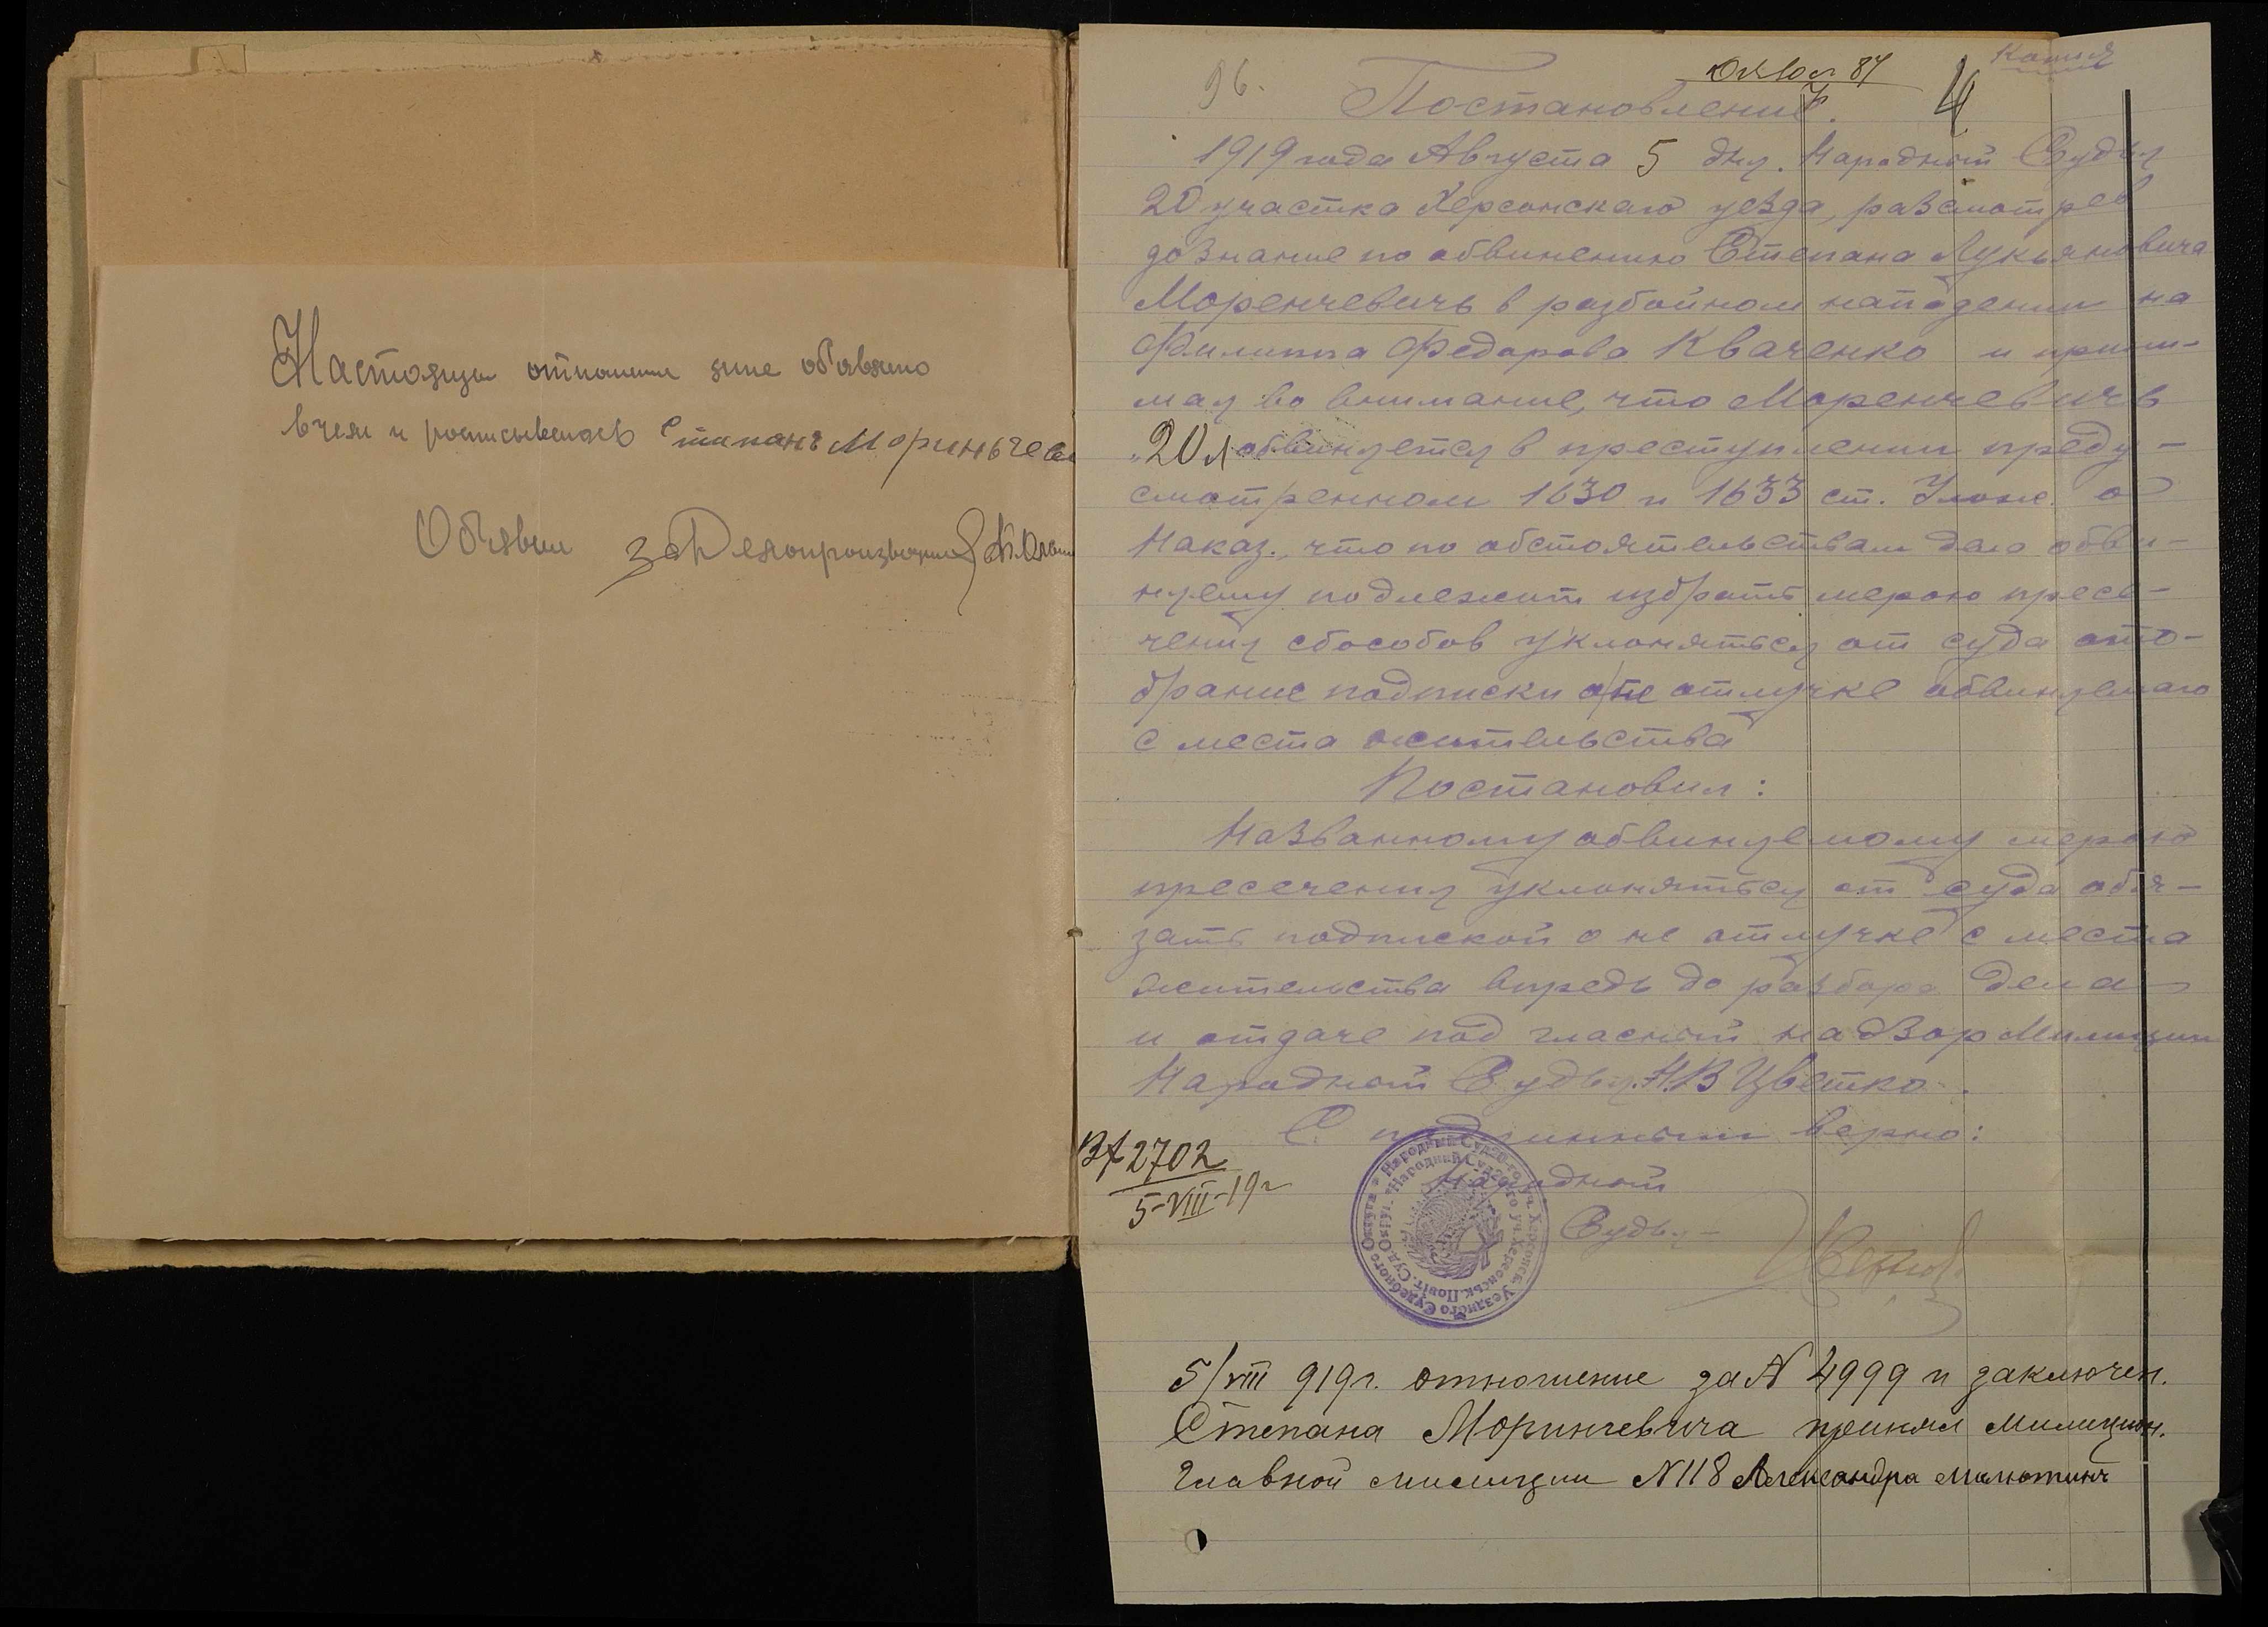 Настоящее отношение мне обявлено
в чем и росписываюсь Степанъ Мориньчеви
Обявил за Делопроизводит
96.
87
4
Копия
Постановление.
1919 года Августа 5 дня. Народный Судья
20 участка Херсонскаго уезда, разсмотрев
дознание по обвинению Степана Лукьяновича
Моренчевичъ в разбойном нападении на
Филиппа Федорова Кваченко и прини-
мая во внимание, что Моренчевичъ
20 л обвиняется в преступлении преду-
смотренном 1630 и 1633 ст. Улож. о
Наказ., что по обстоятельствам дела обви-
няему подлежит избрать мерою пресе-
чения сбособов уклоняться от суда ото-
брание подписки о не отлучке обвиняемаго
с места жительства
Постановил:
Названному обвиняемому мерою
пресечения уклоняться от суда обя-
зать подпиской о не отлучке с места
жительства впредь до разбора дела
и отдаче под гласный надзор Милиции
Народный Судья Н.В Цветко.
С подлинным верно:
Народный
Судья
2702
5-VIII-19г
Народний Суд 20-го уч. Херсонськ. Повіт. Суд. Округ.
5/VIII 919г. отношение за N 4999 и заключен.
Степана Моринчевича принял милицион.
Главной милиции N 118 Александра Малютинъ